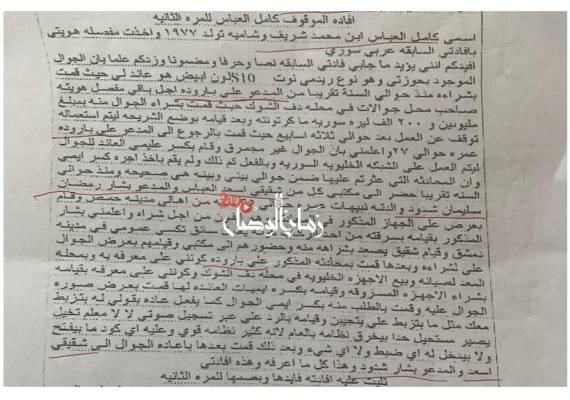 افاده الموقوف كامل العباس للمره الثانيه
اسمي كامل العباس ابن محمد شريف وشاميه تولد ١٩٧٧ واخذت مفصله هويتي
بافادتي السابقه عربي سوري
افيدكم انني يؤيد ما جابي فادتي السابقه نصا وحرفا ومضمونا وزدكم علما بان الجوال
الموجود بحوزتي وهو نوع ريدمي نوت S10 لون ابيض هو عائد لي حيث قمت
بشراءه منذ حوالي السنة تقريبا من المدعو علي باروده اجل باقي مفصل هويته
صاحب محل جوالات في محله دف الشوك حيث قمت بشراء الجوال منه بمبلغ
مليونين و ٢٠٠ الف ليره سوريه ما كرتونته وبعد قيامه بوضع الشريحه ليتم استعماله
توقف عن العمل بعد حوالي ثلاثه اسابيع حيث قمت بالرجوع الى المدعو علي باروده
عمره حوالي ٢٧ واعلمني بان الجوال غير مجمرق وقام بكسر عليمي العائد للجوال
ليتم العمل على الشبكه الخليويه السوريه وبالفعل تم ذلك ولم يقم باخذ اجره كسر ايمي
وان المحادثه التي عثرتم عليها ضمن جوالي بيني وبينه هي صحيحه ومنذ حوالي
السنه تقريبا حضر الى مكتبي كل من شقيقي اسعد العباس والمدعو بشار رمضان
سليمان شدود والدته من اهالي مدينه حمص وقام
بعرض علي الجهاز المذكور من اجل شراءه واعلمني بشار
المذكور بقيامه بسرقته من سائق تكسي عمومي في مدينه
دمشق وقام شقيق يصعد بشراهه منه وحضور هم الى مكتبي وقيامهم بعرض الجوال
علي لشراءه وبعدها قمت بمحادثه المذكور علي باروده كونني على معرفه به وبمحله
المعد لصيانه وبيع الاجهزه الخليويه في محله دف الشوك وكونني على معرفه بقيامه
بشراء الاجهزه المسروقه وقيامه بكسره ايميات العائده لها قمت بعرض صوره
الجوال عليه وقمت بالطلب منه بكسر ايمي الجوال كما يفعل عاده بقولي له يتزبط
معك متل ما يتزبط علي يتجيبن وقيامه بالرد علي عبر تسجيل صوتي لا لا معلم تخيل
يصير مستحيل حدا بيخرق نظامه بالعام لانه كثير نظامه قوي وعليه اي كود ما بيفتح
ولا بيدخل له اي ضبط ولا اي شيء وبعد ذلك قمت بعدها باعاده الجوال الى شقيقي
اسعد والمدعو بشار شدود وهذا كل ما اعرفه وهذه افادتي
تليت عليه افادته فايدها وبصمها للمره الثانيه
زمان الوصل